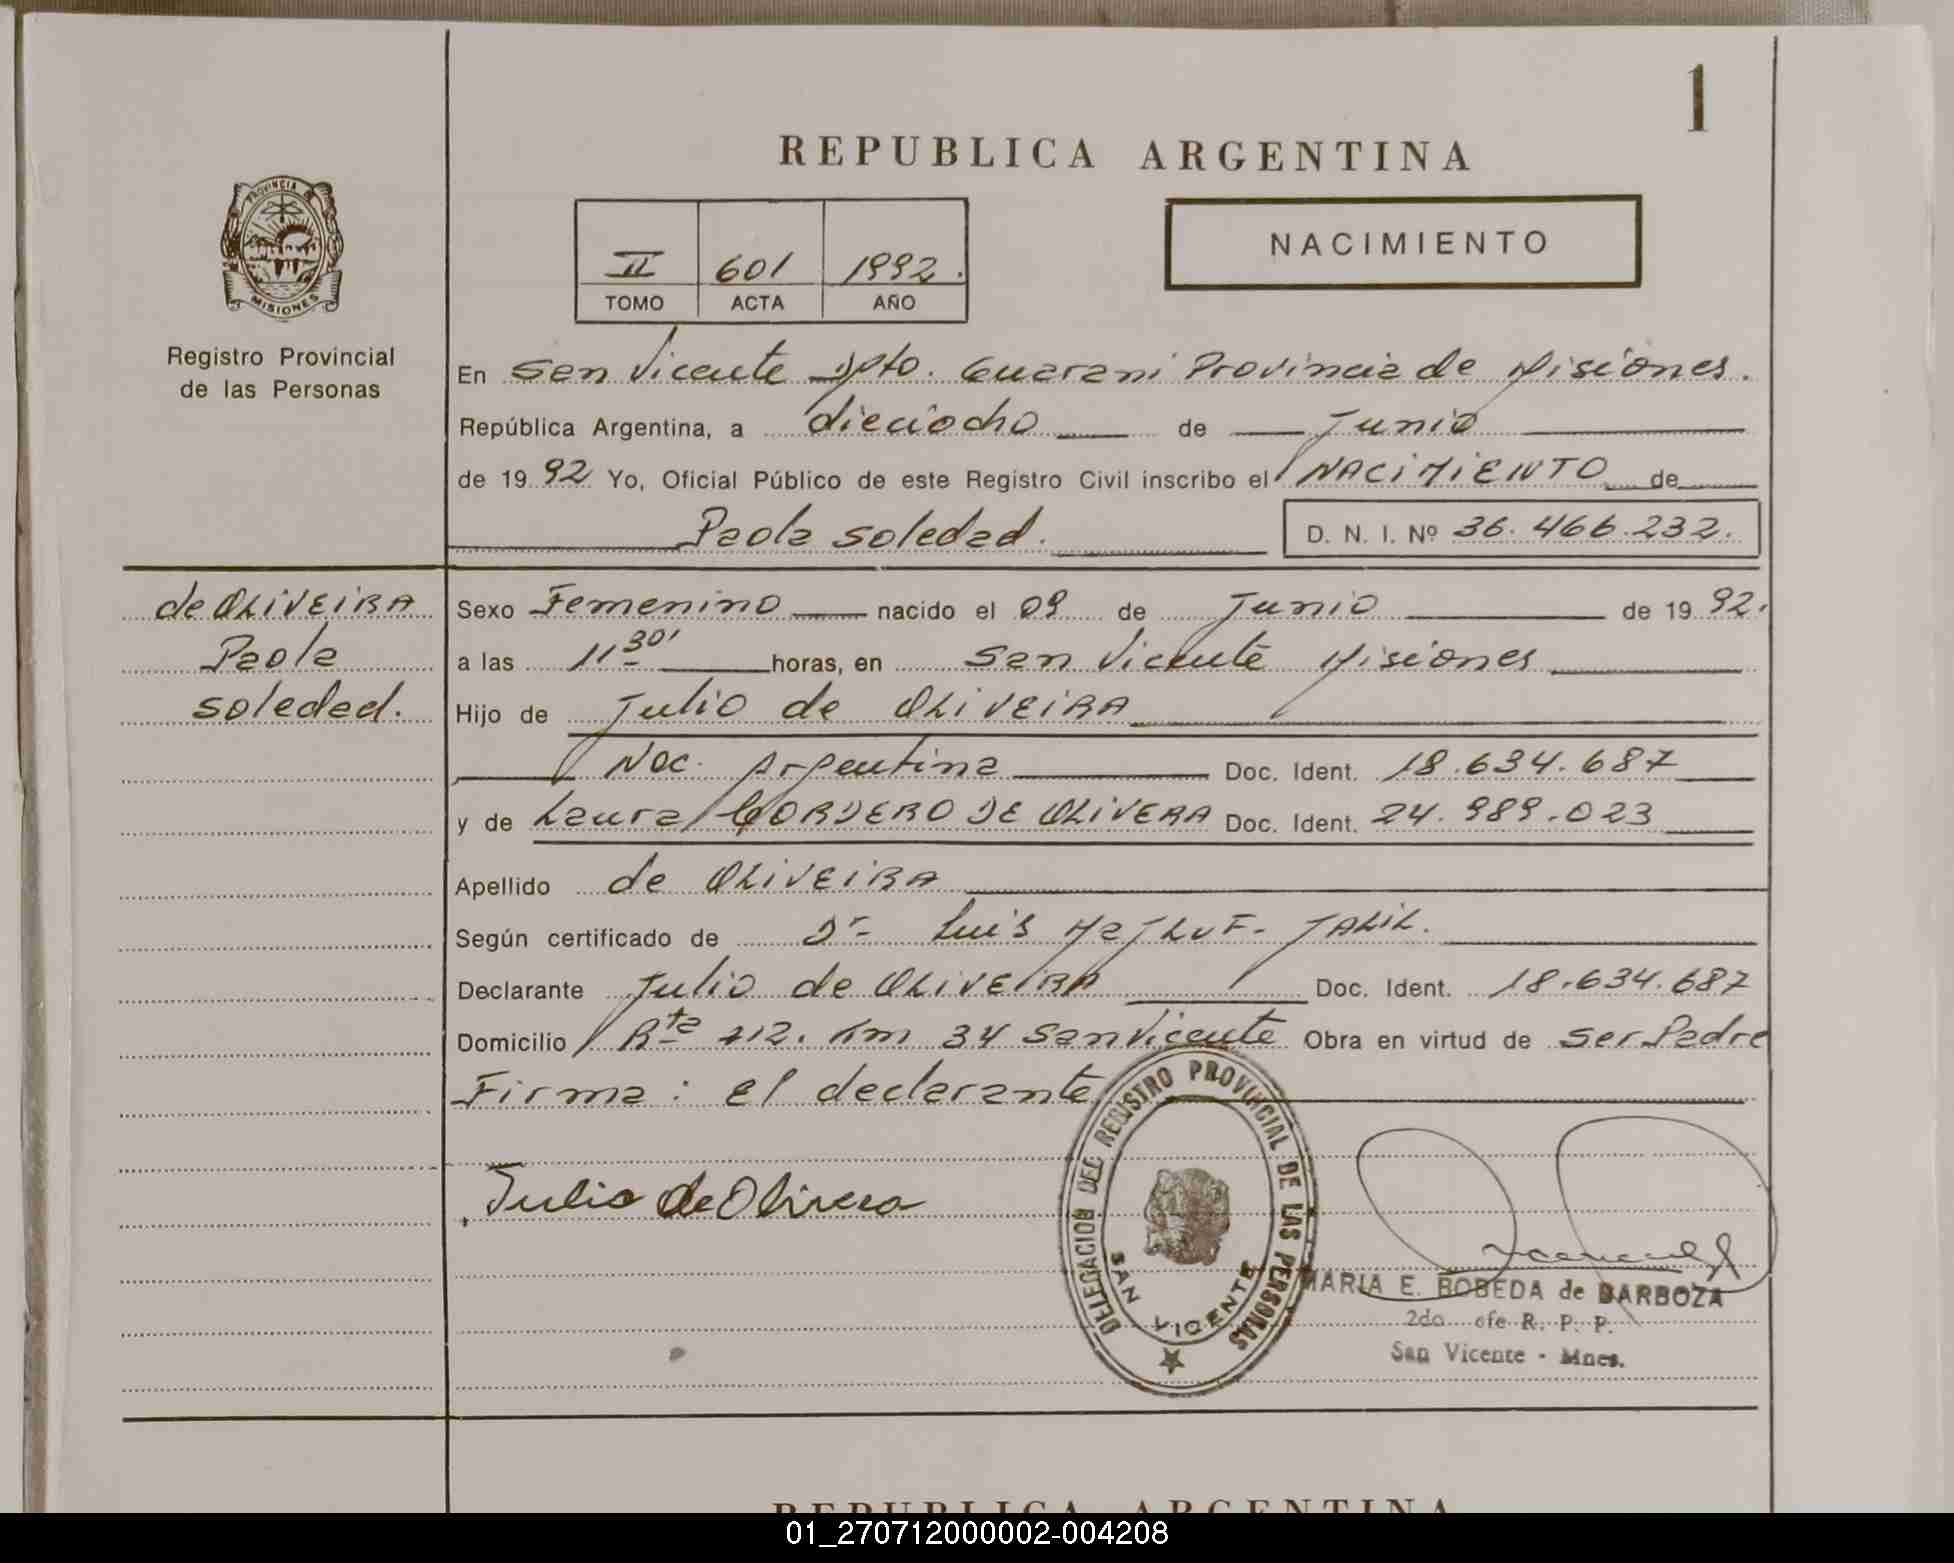 1
REPUBLICA ARGENTINA
PROVINCIA DE
MISIONES
Registro Provincial
de las Personas
II 601 1992.
TOMO ACTA AÑO
NACIMIENTO
En San Vicente Dpto. Guarani Provincia de Misiones.
República Argentina, a dieciocho de Junio
de 1992 Yo, Oficial Público de este Registro Civil inscribo el NACIMIENTO de
Paola Soledad. D. N. I. Nº 36.466.232.
de OLIVEIRA
Paola
Soledad.
Sexo Femenino nacido el 09 de Junio de 1992.
a las 11 30' horas, en San Vicente Misiones
Hijo de Julio de OLIVEIRA
Nac. Argentina Doc. Ident. 18.634.687
y de Laura CORDERO DE OLIVERA Doc. Ident. 24.989.023
Apellido de OLIVEIRA
Según certificado de Dr Luis JALIL.
Declarante Julio de OLIVEIRA Doc. Ident. 18.634.687
Domicilio Rta 212. Km 34 San Vicente Obra en virtud de Ser Padre
Firma: el declarante
Julio de Olivera
DELEGACION DEL REGISTRO PROVINCIAL DE LAS PERSONAS
SAN VICENTE
MARIA E. BOBEDA de BARBOZA
2do. efe R. P. P.
San Vicente - Mnes.
REPUBLICA ARGENTINA
01_270712000002-004208